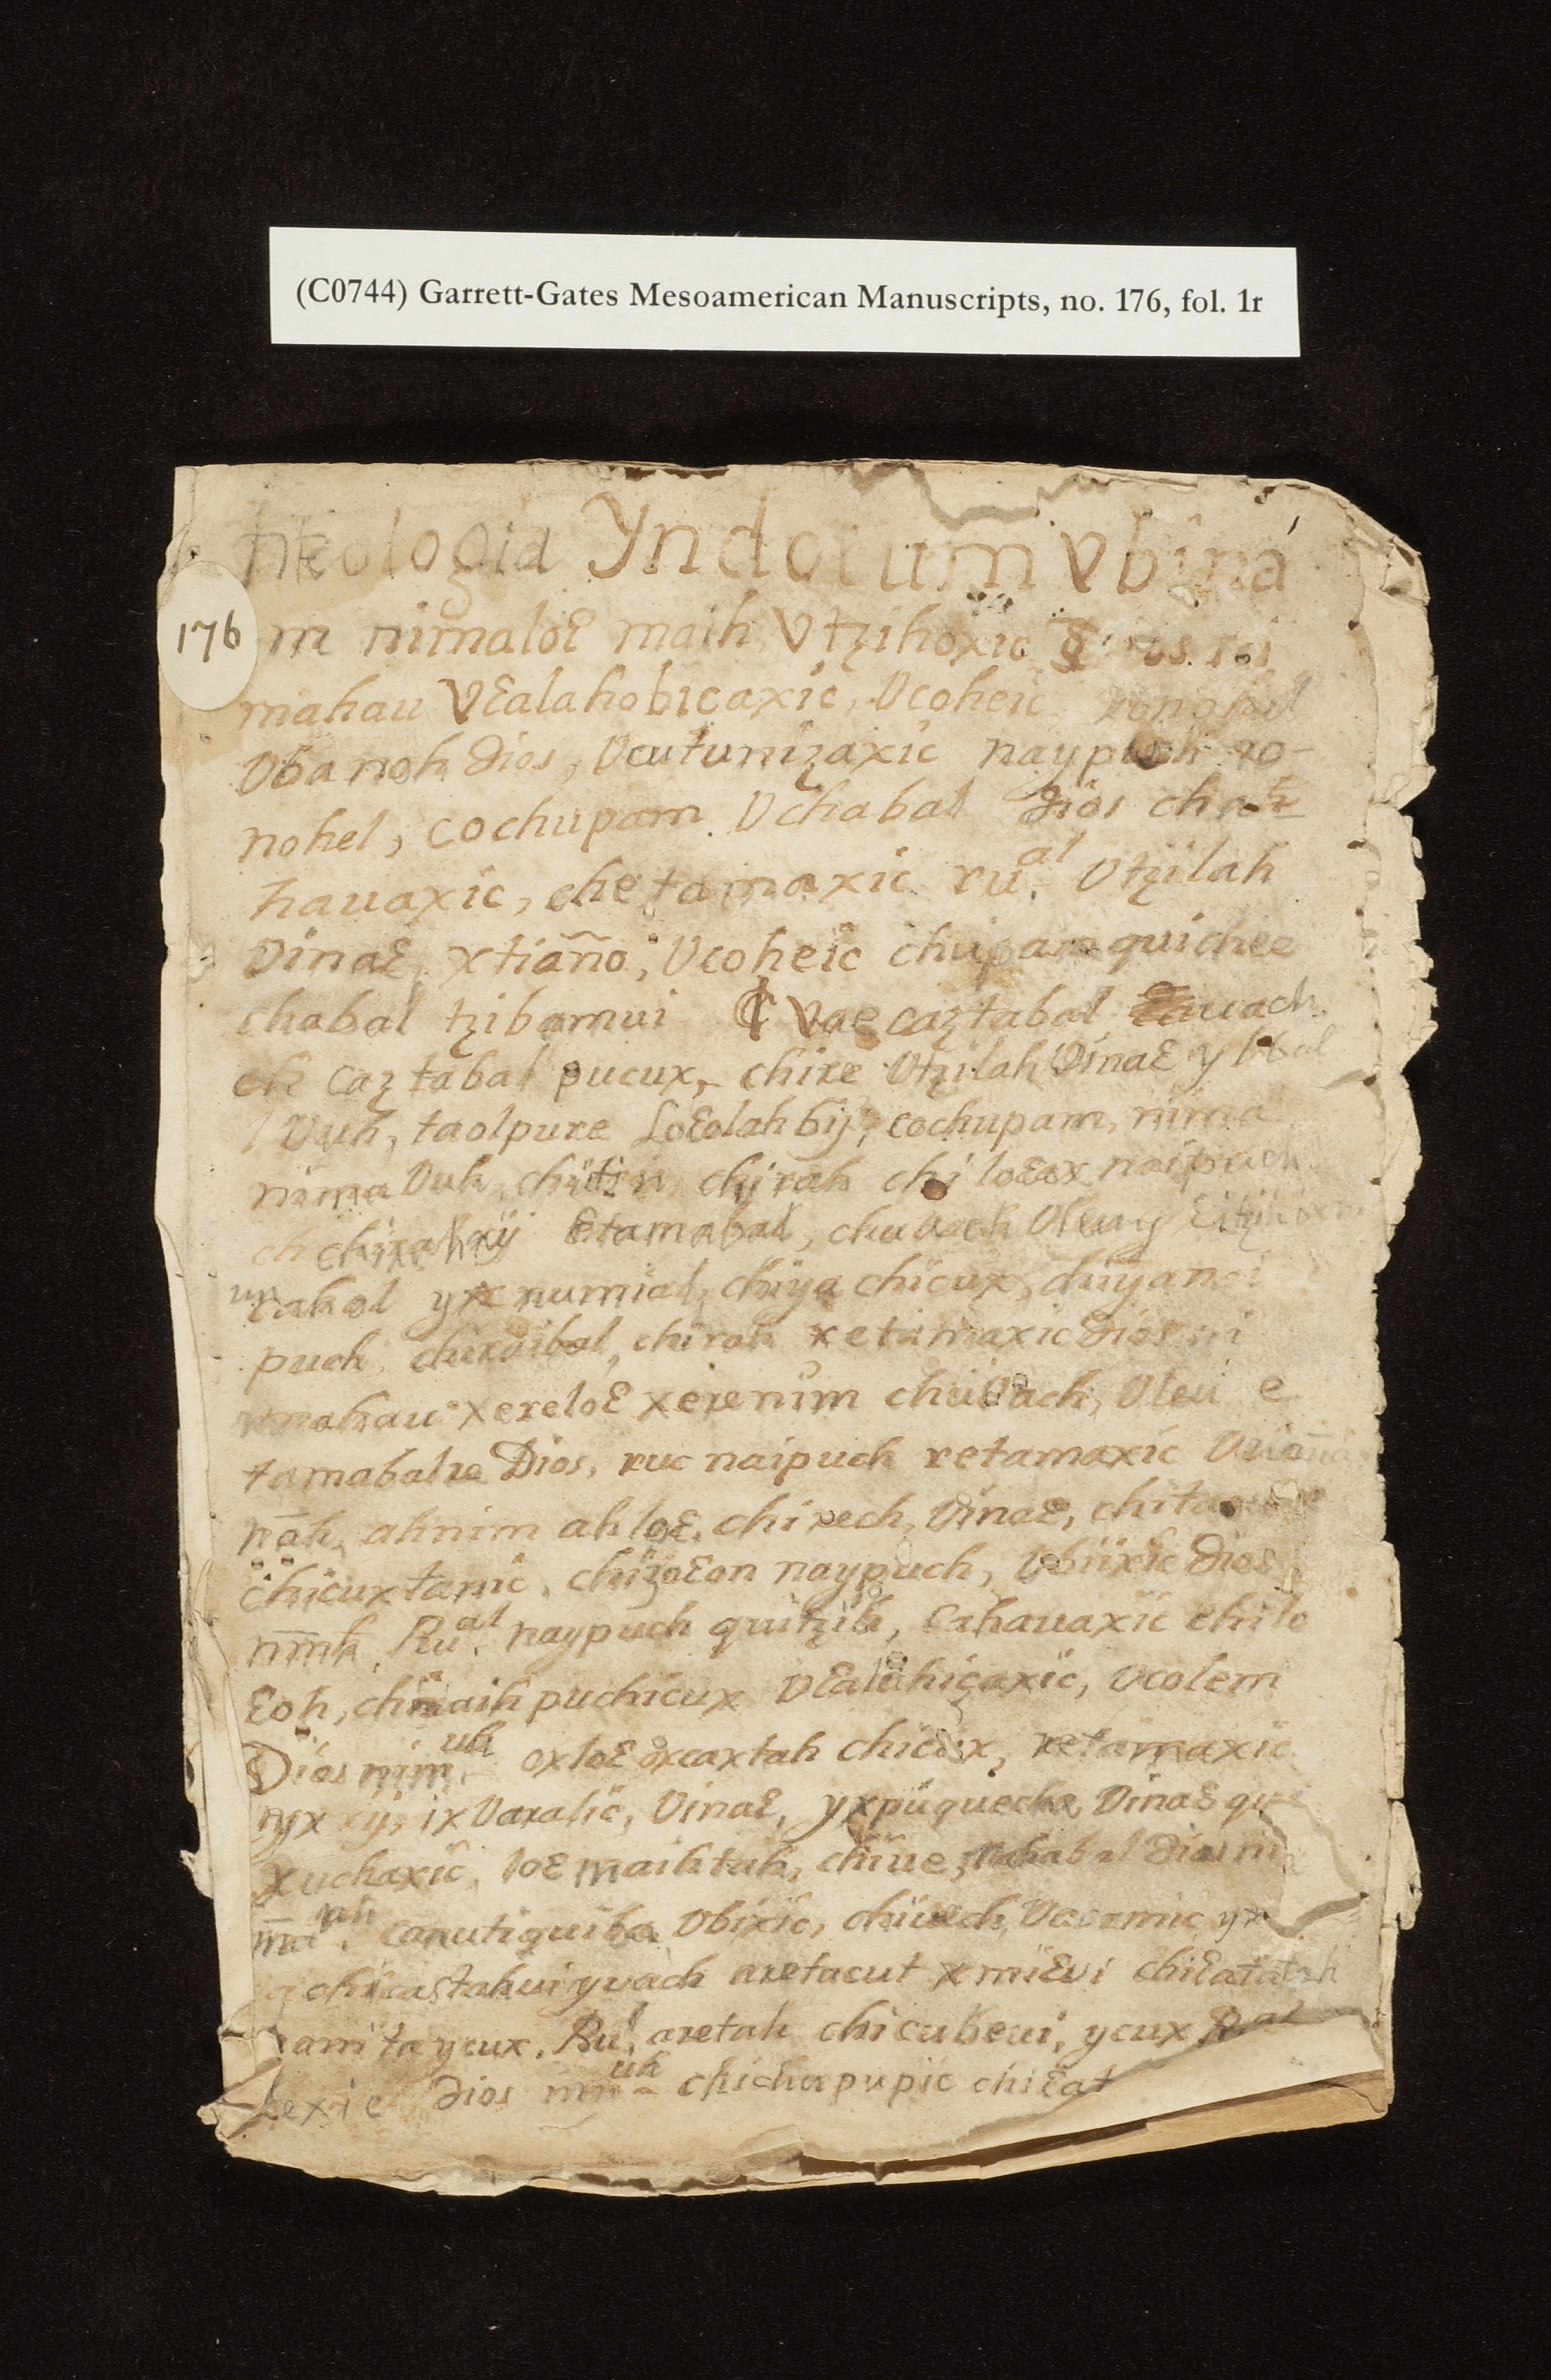 (C0744) Garrett-Gates Mesoamerican Manuscripts, no. 176, fol. 1r
176
theologia Yndorum Vbina
m nimaloɛ maih Vtzihoxic
mahau Vɛalahobicaxic, Vcoheic ronohel
Vbanoh dios, Vcutuniȥaxic naypuch ro-
nohel, cochupam Vchabal dios
hauaxic, chetamaxic ruᵃˡ. Vtȥilah
Vinaɛ, xtiaño, Vcoheic chupam quichee
chabal tȥibamui ₵ Vae caȥtabal uach
ch caȥtabal pucux, chire Vtȥilah Vinaɛ
Vuh, taolpure Loɛolah bij, cochupam, nima
nima Vuh, chirah chiloɛox naipuch
ch chirahxij Etamabal, chuuach Vleuy
cahol yxnumial, chiya chicux, chiyanai
puch chiraibal, chirah retamaxic dios ni
mahau xereloɛ xerenim chuVach, Vleu e
tamabalre Dios, ruc naipuch retamaxic
nah, ahnim ahloɛ, chirech, Vinaɛ,
chicuxtanic, chiȥoɛon naypuch, Vbiixic dios
nmh. Ruᵃˡ. naypuch quitȥih, Cahauaxic chilo
ɛoh, chimaih puchicux Vɛalahiçaxic, Vcolem
Dios nimᵘʰ. oxloɛ oxcaxtah chicux, retamaxic
ixVaralic, Vinaɛ, yxpuqueche Vinaɛ
xuchaxic, loɛ maihtah, chiue, Vchabal dios ni
maʰᵃʰ. canutiquiba Vbixic, chiuech Vacamic yx
chicastahui yuach aretacut xmiɛui chiɛatatah
ta ycux. Ruˡ. aretah chicubeui, ycux
lexic dios nmᵘʰ chichupupic chiɛat